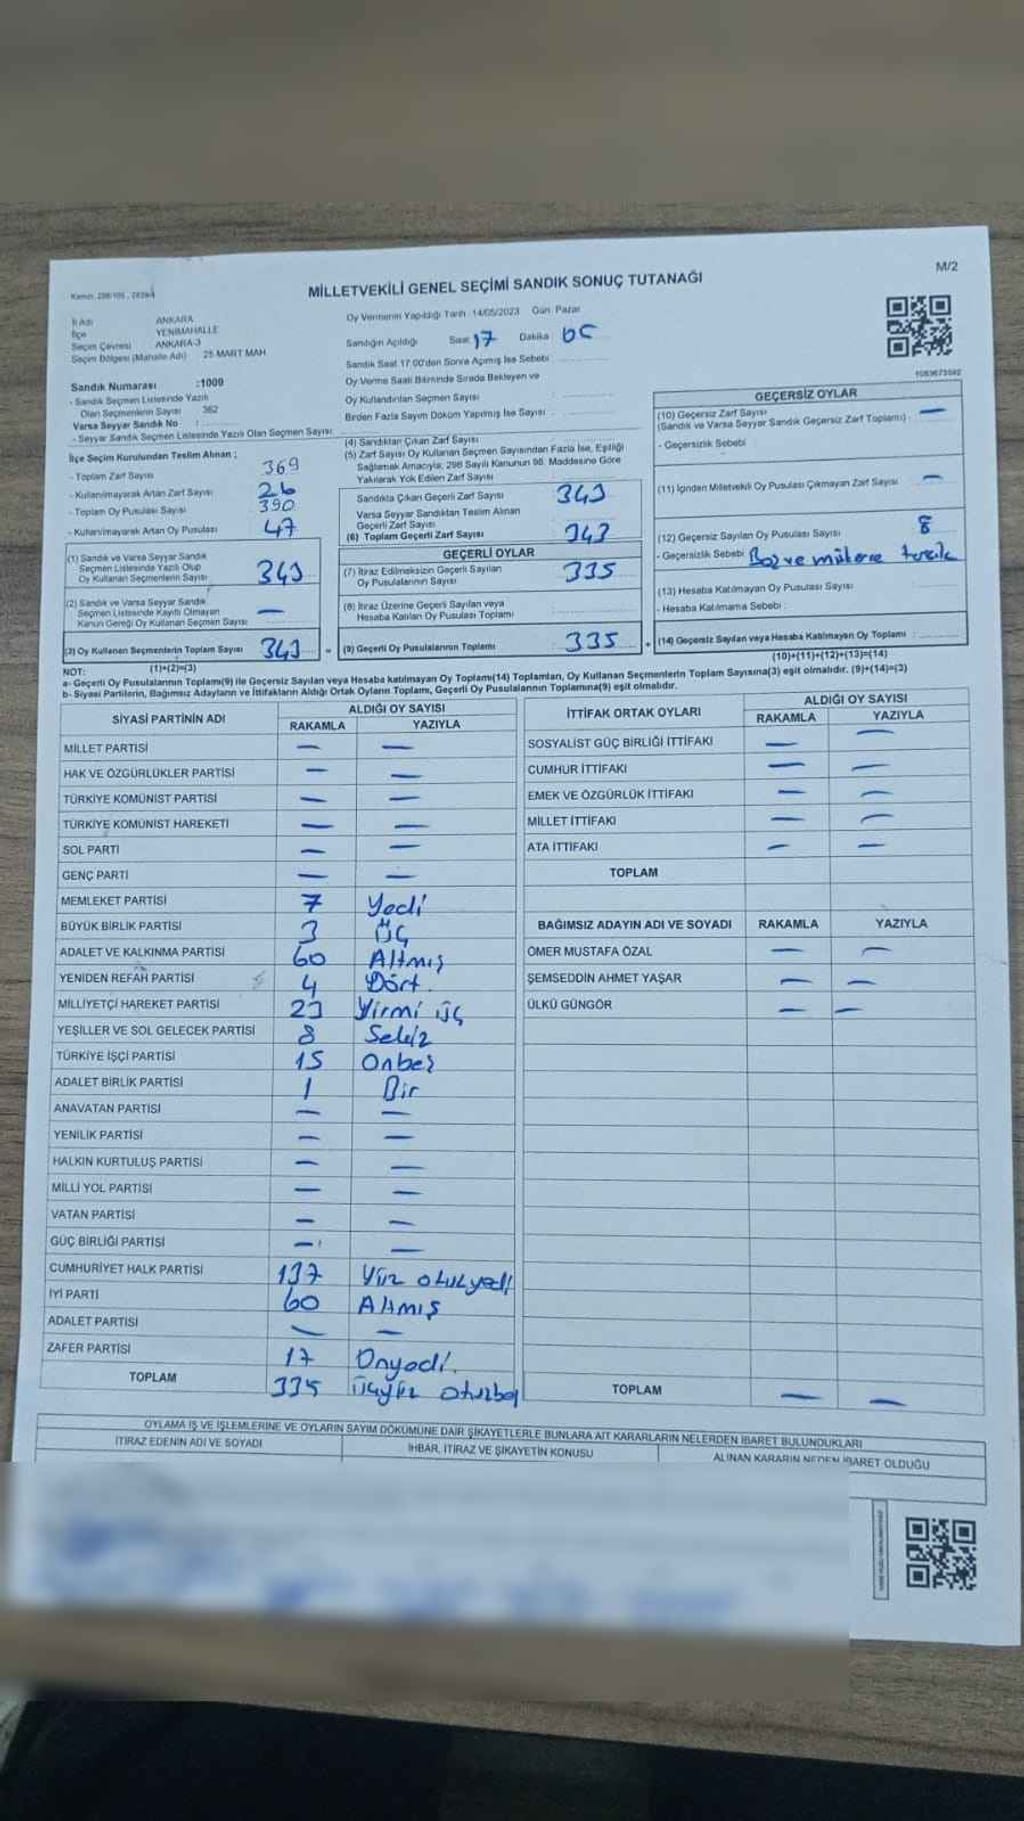 MİLLETVEKİLİ GENEL SEÇİMİ SANDIK SONUÇ TUTANAĞI
M/2
İli Adı ANKARA
İlçe YENİMAHALLE
Seçim Çevresi ANKARA-3
Seçim Bölgesi (Mahalle Adı) 25 MART MAH
Sandık Numarası :1009
- Sandık Seçmen Listesinde Yazılı
Olan Seçmenlerin Sayısı 362
Varsa Seyyar Sandık No :
- Seyyar Sandık Seçmen Listesinde Yazılı Olan Seçmen Sayısı
İlçe Seçim Kurulundan Teslim Alınan ;
- Toplam Zarf Sayısı 369
- Kullanılmayarak Artan Zarf Sayısı 26
- Toplam Oy Pusulası Sayısı 390
- Kullanılmayarak Artan Oy Pusulası 47
(1) Sandık ve Varsa Seyyar Sandık
Seçmen Listesinde Yazılı Olup
Oy Kullanan Seçmenlerin Sayısı 343
(2) Sandık ve Varsa Seyyar Sandık
Seçmen Listesinde Kayıtlı Olmayan
Kanun Gereği Oy Kullanan Seçmen Sayısı —
(3) Oy Kullanan Seçmenlerin Toplam Sayısı 343
(1)+(2)=(3)
Oy Vermenin Yapıldığı Tarih :14/05/2023 Gün: Pazar
Sandığın Açıldığı Saat 17 Dakika 05
Sandık Saat 17.00'den Sonra Açılmış İse Sebebi
Oy Verme Saati Bitiminde Sırada Bekleyen ve
Oy Kullandırılan Seçmen Sayısı
Birden Fazla Sayım Döküm Yapılmış İse Sayısı
(4) Sandıktan Çıkan Zarf Sayısı
(5) Zarf Sayısı Oy Kullanan Seçmen Sayısından Fazla İse, Eşitliği
Sağlamak Amacıyla, 298 Sayılı Kanunun 98. Maddesine Göre
Yakılarak Yok Edilen Zarf Sayısı
Sandıkta Çıkan Geçerli Zarf Sayısı 343
Varsa Seyyar Sandıktan Teslim Alınan
Geçerli Zarf Sayısı
(6) Toplam Geçerli Zarf Sayısı 343
GEÇERLİ OYLAR
(7) İtiraz Edilmeksizin Geçerli Sayılan
Oy Pusulalarının Sayısı 335
(8) İtiraz Üzerine Geçerli Sayılan veya
Hesaba Katılan Oy Pusulası Toplamı
(9) Geçerli Oy Pusulalarının Toplamı 335
GEÇERSİZ OYLAR
(10) Geçersiz Zarf Sayısı —
(Sandık ve Varsa Seyyar Sandık Geçersiz Zarf Toplamı) :
- Geçersizlik Sebebi
(11) İçinden Milletvekili Oy Pusulası Çıkmayan Zarf Sayısı —
(12) Geçersiz Sayılan Oy Pusulası Sayısı 8
- Geçersizlik Sebebi
(13) Hesaba Katılmayan Oy Pusulası Sayısı
- Hesaba Katılmama Sebebi :
(14) Geçersiz Sayılan veya Hesaba Katılmayan Oy Toplamı :
(10)+(11)+(12)+(13)=(14)
NOT:
a- Geçerli Oy Pusulalarının Toplamı(9) ile Geçersiz Sayılan veya Hesaba katılmayan Oy Toplamı(14) Toplamları, Oy Kullanan Seçmenlerin Toplam Sayısına(3) eşit olmalıdır. (9)+(14)=(3)
b- Siyasi Partilerin, Bağımsız Adayların ve İttifakların Aldığı Ortak Oyların Toplamı, Geçerli Oy Pusulalarının Toplamına(9) eşit olmalıdır.
SİYASİ PARTİNİN ADI ALDIĞI OY SAYISI
RAKAMLA YAZIYLA
MİLLET PARTİSİ — —
HAK VE ÖZGÜRLÜKLER PARTİSİ — —
TÜRKİYE KOMÜNİST PARTİSİ — —
TÜRKİYE KOMÜNİST HAREKETİ — —
SOL PARTİ — —
GENÇ PARTİ — —
MEMLEKET PARTİSİ 7 Yedi
BÜYÜK BİRLİK PARTİSİ 3 Üç
ADALET VE KALKINMA PARTİSİ 60 Altmış
YENİDEN REFAH PARTİSİ 4 Dört
MİLLİYETÇİ HAREKET PARTİSİ 23 Yirmi üç
YEŞİLLER VE SOL GELECEK PARTİSİ 8 Sekiz
TÜRKİYE İŞÇİ PARTİSİ 15 Onbeş
ADALET BİRLİK PARTİSİ 1 Bir
ANAVATAN PARTİSİ — —
YENİLİK PARTİSİ — —
HALKIN KURTULUŞ PARTİSİ — —
MİLLİ YOL PARTİSİ — —
VATAN PARTİSİ — —
GÜÇ BİRLİĞİ PARTİSİ — —
CUMHURİYET HALK PARTİSİ 137 Yüz otuzyedi
İYİ PARTİ 60 Altmış
ADALET PARTİSİ — —
ZAFER PARTİSİ 17 Onyedi
TOPLAM 335 Üçyüz otuzbeş
İTTİFAK ORTAK OYLARI ALDIĞI OY SAYISI
RAKAMLA YAZIYLA
SOSYALİST GÜÇ BİRLİĞİ İTTİFAKI — —
CUMHUR İTTİFAKI — —
EMEK VE ÖZGÜRLÜK İTTİFAKI — —
MİLLET İTTİFAKI — —
ATA İTTİFAKI — —
TOPLAM
BAĞIMSIZ ADAYIN ADI VE SOYADI RAKAMLA YAZIYLA
ÖMER MUSTAFA ÖZAL — —
ŞEMSEDDİN AHMET YAŞAR — —
ÜLKÜ GÜNGÖR — —
TOPLAM — —
OYLAMA İŞ VE İŞLEMLERİNE VE OYLARIN SAYIM DÖKÜMÜNE DAİR ŞİKAYETLERLE BUNLARA AİT KARARLARIN NELERDEN İBARET BULUNDUKLARI
İTİRAZ EDENİN ADI VE SOYADI
İHBAR, İTİRAZ VE ŞİKAYETİN KONUSU
ALINAN KARARIN NEDEN İBARET OLDUĞU